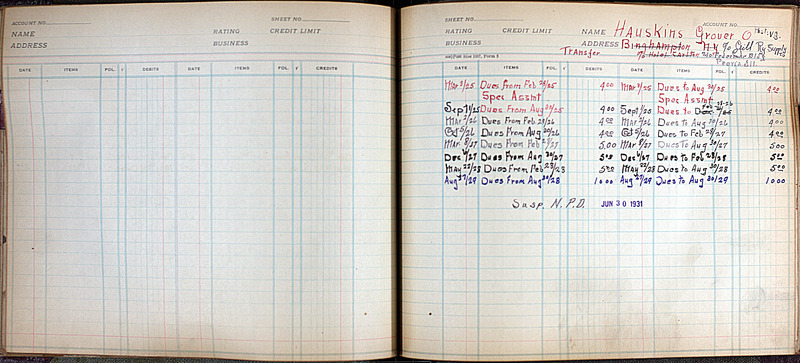 ACCOUNT NO.
SHEET NO.
NAME
RATING
CREDIT LIMIT
ADDRESS
BUSINESS
DATE ITEMS FOL. √ DEBITS DATE ITEMS FOL. √ CREDITS
SHEET NO.
ACCOUNT NO.
RATING CREDIT LIMIT NAME Hauskins Grover O
BUSINESS ADDRESS Binghampton N.Y. % Still Ry Supply
Transfer % Hotel Carlton
Peoria Ill.
DATE ITEMS FOL. √ DEBITS DATE ITEMS FOL. √ CREDITS
Mar 2/25 Dues From Feb 28/25 4.00 Mar 2/25 Dues to Aug 30/25 4.00
Spec Assmt Spec Assmt
Sept 1/25 Dues From Aug 30/25 4.00 Sept 1/25 Dues to Feb 28-26 4.00
Mar 2/26 Dues From Feb 28/26 4.00 Mar 2/26 Dues to Aug 30/26 4.00
Oct 5/26 Dues From Aug 30/26 4.00 Oct 5/26 Dues to Feb 28/27 4.00
Mar 8/27 Dues From Feb 28/27 5.00 Mar 8/27 Dues to Aug 30/27 5.00
Dec 6/27 Dues From Aug 30/27 5.00 Dec 6/27 Dues to Feb 28/28 5.00
May 22/28 Dues From Feb 28/28 5.00 May 22/28 Dues to Aug 30/28 5.00
Aug 27/29 Dues From Aug 30/28 10.00 Aug 27/29 Dues to Aug 30/29 10.00
Susp. N.P.D. JUN 30 1931